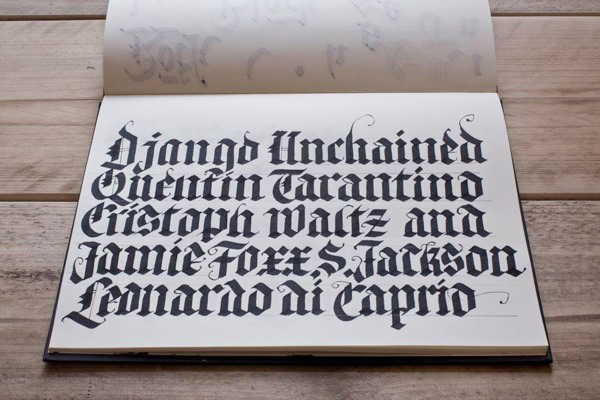 Django Unchained
Quentin Tarantino
Cristoph Waltz and
Jamie Foxx S. Jackson
Leonardo di Caprio